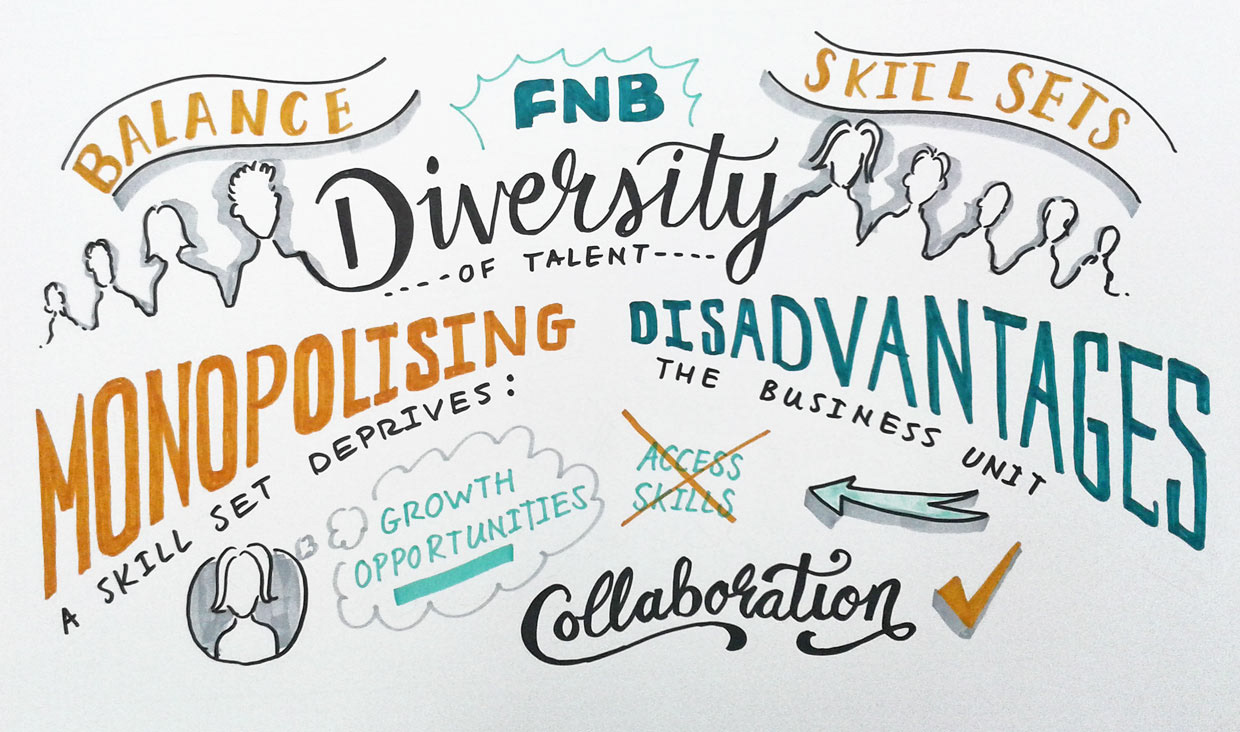 BALANCE
FNB
SKILL SETS
Diversity
OF TALENT
MONOPOLISING
A SKILL SET DEPRIVES:
DISADVANTAGES
THE BUSINESS UNIT
GROWTH
OPPORTUNITIES
ACCESS
SKILLS
Collaboration